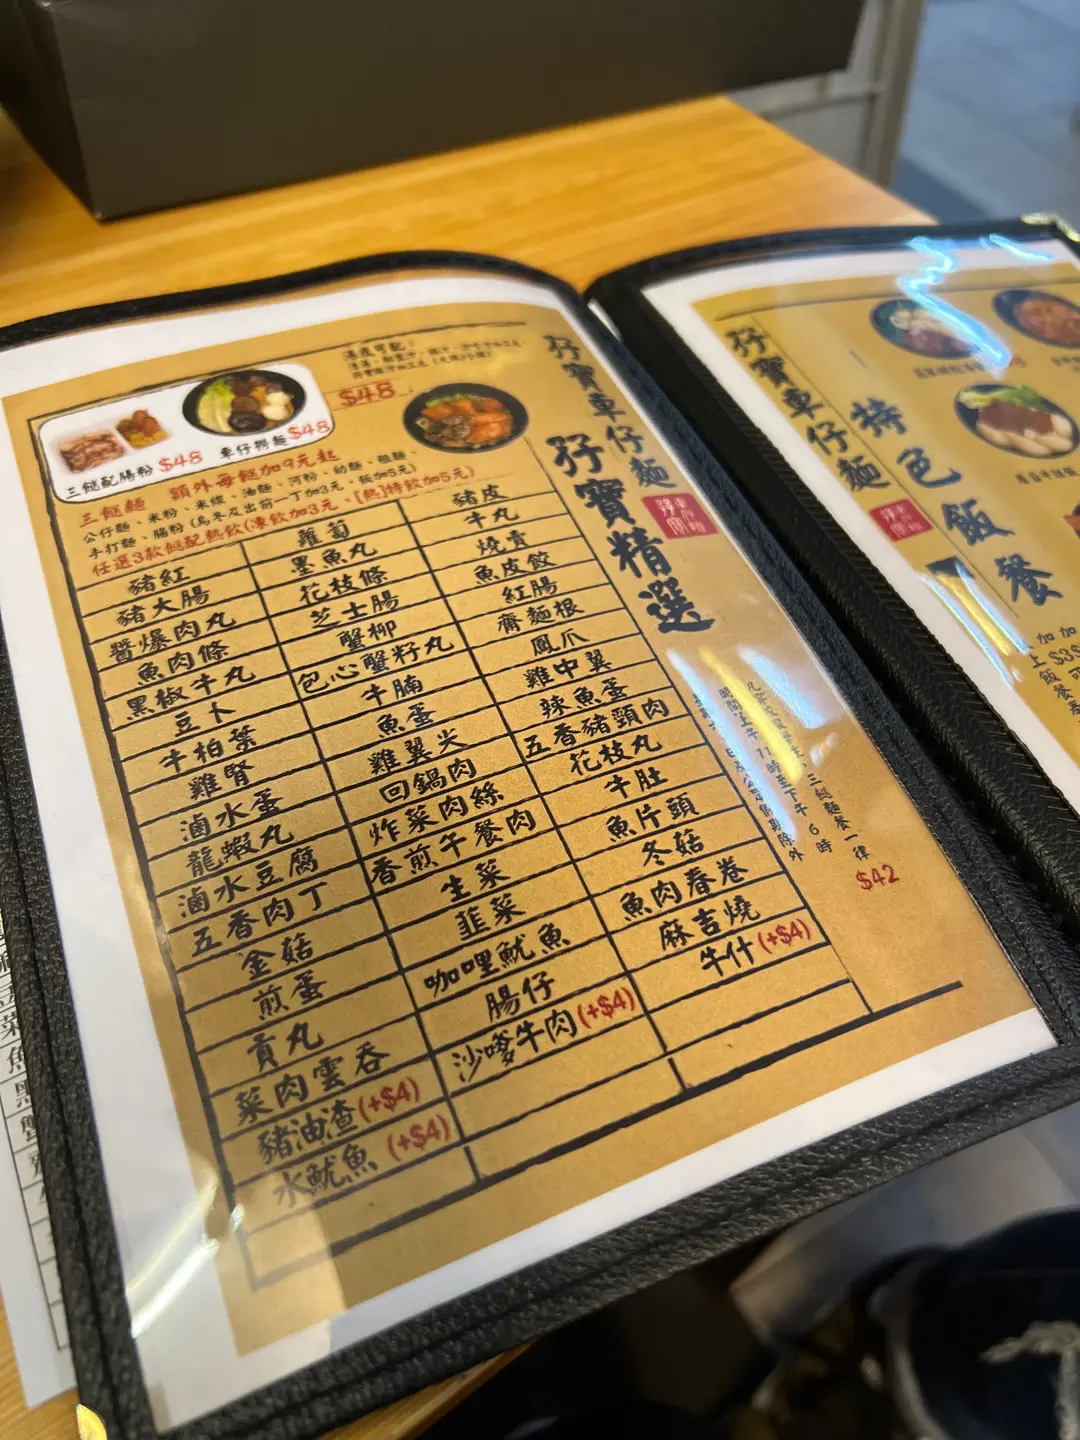 孖寶車仔麵
孖寶精選
$48
三餸配腸粉 $48
車仔撈麵 $48
三餸麵 額外每餸加9元起
公仔麵、米粉、米線、油麵、河粉、幼麵、粗麵、
手打麵、腸粉(烏冬及出前一丁加3元、飯加5元)
任選3款餸配熱飲(凍飲加3元、[熱]特飲加5元)
豬紅
豬大腸
醬爆肉丸
魚肉條
黑椒牛丸
豆卜
牛柏葉
雞腎
滷水蛋
龍蝦丸
滷水豆腐
五香肉丁
金菇
煎蛋
貢丸
菜肉雲吞
豬油渣(+$4)
水魷魚 (+$4)
蘿蔔
墨魚丸
花枝條
芝士腸
蟹柳
包心蟹籽丸
牛腩
魚蛋
雞翼尖
回鍋肉
炸菜肉絲
香煎午餐肉
生菜
韭菜
咖哩魷魚
腸仔
沙嗲牛肉(+$4)
豬皮
牛丸
燒賣
魚皮餃
紅腸
齋麵根
鳳爪
雞中翼
辣魚蛋
五香豬頸肉
花枝丸
牛肚
魚片頭
冬菇
魚肉春卷
麻吉燒
牛什(+$4)
三餸麵餐一律
$42
時間上午11時至下午6時
孖寶車仔麵
特色飯餐